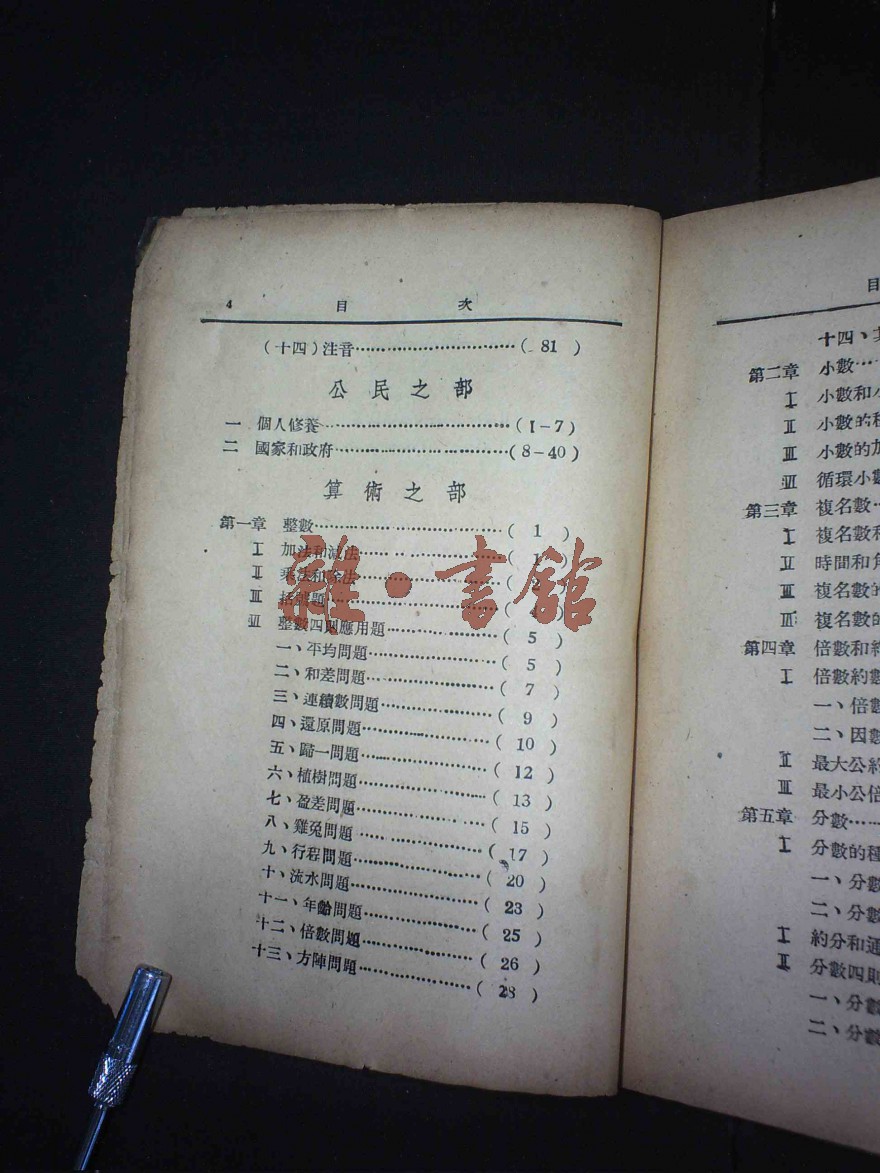 4 目 次
(十四)注音……………………………( 81 )
公民之部
一 個人修養……………………………(1-7)
二 國家和政府…………………………(8-40)
算術之部
第一章 整數……………………………( 1 )
I 加法和減法……………………………( 1 )
II 乘法和除法……………………………( 2 )
III 括號題……………………………( 4 )
IV 整數四則應用題……………………( 5 )
一、平均問題……………………………( 5 )
二、和差問題……………………………( 7 )
三、連續數問題…………………………( 9 )
四、還原問題……………………………( 10 )
五、歸一問題……………………………( 12 )
六、植樹問題……………………………( 13 )
七、盈差問題……………………………( 15 )
八、雞兔問題……………………………( 17 )
九、行程問題……………………………( 20 )
十、流水問題……………………………( 23 )
十一、年齡問題…………………………( 25 )
十二、倍數問題…………………………( 26 )
十三、方陣問題…………………………( 28 )
雜·書館
目
十四、
第二章 小數…
I 小數和小
II 小數的
III 小數的加
IV 循環小數
第三章 複名數…
I 複名數和
II 時間和角
III 複名數的
複名數的
第四章 倍數和約
I 倍數約數
一、倍數
二、因數
II 最大公約
III 最小公倍
第五章 分數……
I 分數的種
一、分數
二、分數
約分和通
分數四則
一、分數
二、分數